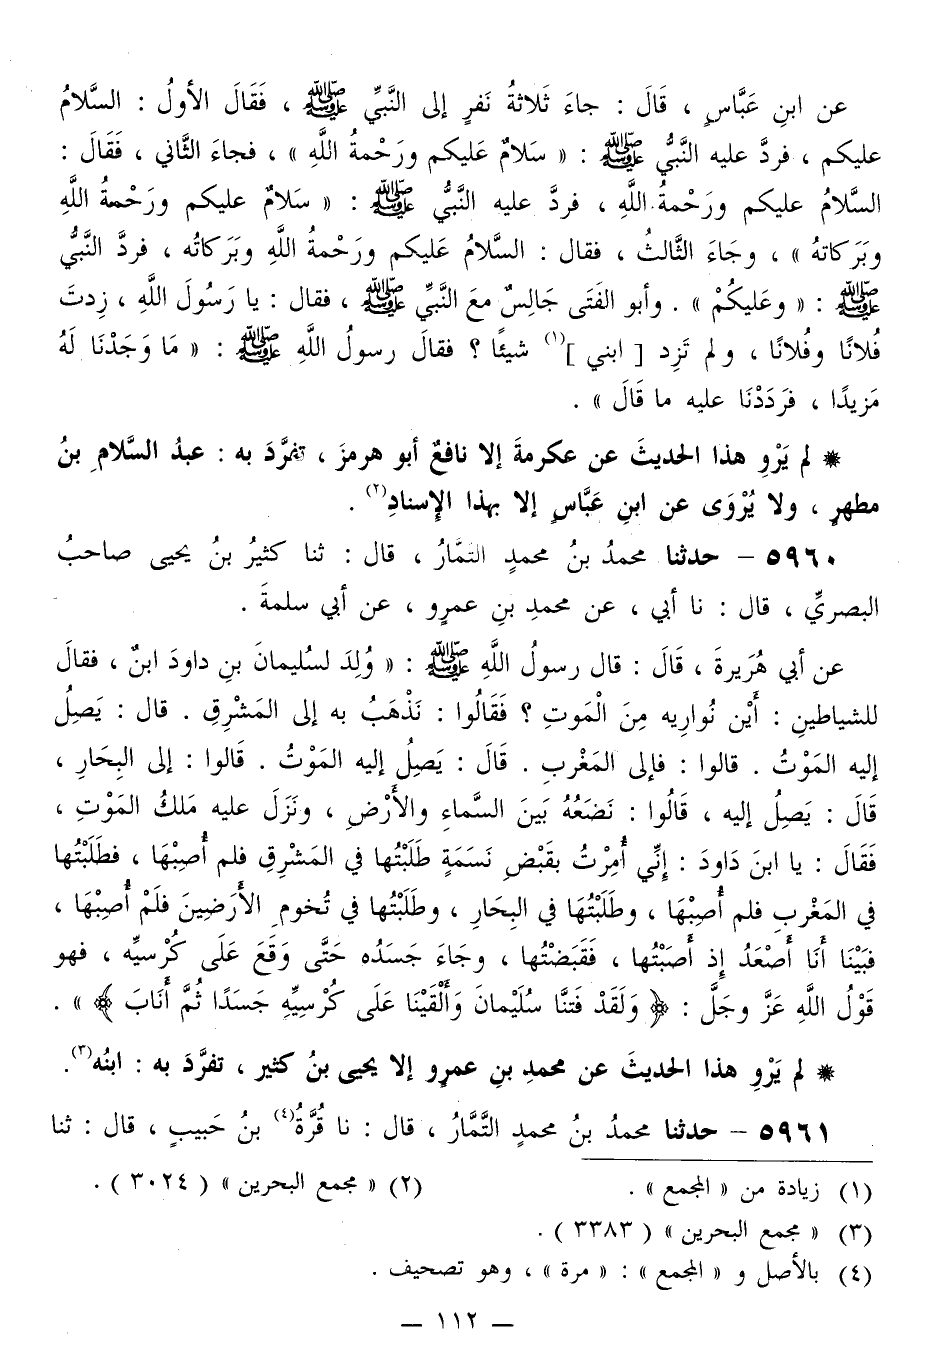 عن ابنِ عَبَّاسٍ ، قَالَ : جاءَ ثَلاثةُ نَفرٍ إلى النَّبيِّ ﷺ ، فَقَالَ الأولُ : السَّلامُ
عليكم ، فردَّ عليه النَّبيُّ ﷺ : « سَلامٌ عَليكم ورَحْمةُ اللَّهِ » ، فجاءَ الثَّاني ، فقَالَ :
السَّلامُ عليكم ورَحْمةُ اللَّهِ ، فردَّ عليه النَّبيُّ ﷺ : « سَلامٌ عليكم ورَحْمةُ اللَّهِ
وبَرَكاتهُ » ، وجَاءَ الثَّالثُ ، فقال : السَّلامُ عَليكم ورَحْمةُ اللَّهِ وبَرَكاتُه ، فردَّ النَّبيُّ
ﷺ : « وعَليكُمْ » . وأبو الفَتَى جَالِسٌ معَ النَّبيِّ ﷺ ، فقال : يا رَسُولَ اللَّهِ ، زِدتَ
فُلانًا وفُلانًا ، ولم تَزِد [ ابني ](١) شيئًا ؟ فقالَ رسولُ اللَّهِ ﷺ : « مَا وَجَدْنَا لَهُ
مَزيدًا ، فرَدَدْنَا عليه ما قَالَ » .
* لم يَرْوِ هذا الحديثَ عن عكرمةَ إلا نافعٌ أبو هرمزَ ، تفرَّدَ به : عبدُ السَّلامِ بنُ
مطهرٍ ، ولا يُرْوَى عن ابنِ عَبَّاسٍ إلا بهذا الإِسنادِ(٢) .
٥٩٦٠ – حدثنا محمدُ بنُ محمدٍ التمَّارُ ، قال : ثنا كثيرُ بنُ يحيى صاحبُ
البصريِّ ، قال : نا أبي ، عن محمدِ بنِ عمرٍو ، عن أبي سلمةَ .
عن أبي هُرَيرةَ ، قَالَ : قال رسولُ اللَّهِ ﷺ : « وُلِدَ لسُليمانَ بنِ داودَ ابنٌ ، فقالَ
للشياطينِ : أَيْن نُواريه مِنَ الْمَوتِ ؟ فَقَالُوا : نَذْهَبُ به إلى المَشْرِقِ . قال : يَصِلُ
إليه المَوْتُ . قالوا : فإلى المَغْربِ . قَالَ : يَصِلُ إليه المَوْتُ . قَالوا : إلى البِحَارِ ،
قَالَ : يَصِلُ إليه ، قَالُوا : نَضَعُهُ بَينَ السَّماءِ والأَرْضِ ، ونَزَلَ عليه مَلكُ المَوْتِ ،
فَقَالَ : يا ابنَ دَاودَ : إنِّي أُمِرْتُ بقَبْضِ نَسَمَةٍ طَلَبْتُها في المَشْرِقِ فلم أُصِبْهَا ، فطَلَبْتُها
في المَغْربِ فلم أُصِبْهَا ، وطَلَبْتُهَا في البِحَارِ ، وطَلَبْتُها في تُخومِ الأَرَضِينَ فَلَمْ أُصِبْهَا ،
فبَيْنَا أَنَا أَصْعَدُ إِذ أَصَبْتُها ، فَقَبَضْتُها ، وجَاءَ جَسَدُه حَتَّى وَقَعَ عَلَى كُرْسيِّه ، فهو
قَوْلُ اللَّهِ عَزَّ وجَلَّ : ﴿ وَلَقَدْ فَتنَّا سُلَيْمانَ وَأَلْقَيْنَا عَلَى كُرْسِيِّهِ جَسَدًا ثُمَّ أَنَابَ ﴾ » .
* لم يَرْوِ هذا الحديثَ عن محمدِ بنِ عمرٍو إلا يحيى بنُ كثير ، تفرَّدَ به : ابنُه(٣).
٥٩٦١ – حدثنا محمدُ بنُ محمدٍ التَّمَّارُ ، قال : نا قُرَّةُ(٤) بنُ حَبيبٍ ، قال : ثنا
(١) زيادة من « المجمع » .
(٢) « مجمع البحرين » ( ٣٠٢٤ ) .
(٣) « مجمع البحرين » ( ٣٣٨٣ ) .
(٤) بالأصل و « المجمع » : « مرة » ، وهو تصحيف .
— ١١٢ —